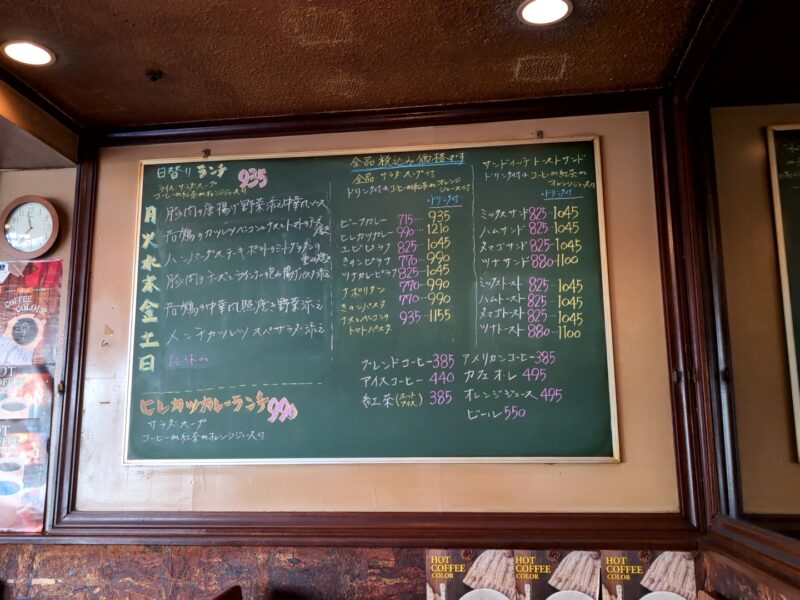 日替り ランチ 935
ライス サラダ スープ
コーヒーor紅茶orオレンジジュース付
月 豚肉の唐揚げ野菜添え中華風ソース
火 若鶏のカツレツベーコンとナスとトマトのチーズ焼き
水 ハンバーグステーキ
木 豚肉の
金 若鶏の中華風照焼き野菜添え
土 メンチカツレツ スパサラダ添え
日 お休み
ヒレカツカレーランチ 990
サラダ・スープ
コーヒーor紅茶orオレンジジュース付
全品税込み価格です
全品 サラダ スープ付
ドリンク付はコーヒーor紅茶orオレンジジュース付
ドリンク付
ビーフカレー 715…935
ヒレカツカレー 990…1210
エビピラフ 825…1045
きのこピラフ 770…990
ツナカレーピラフ 825…1045
ナポリタン 770…990
きのこパスタ 770…990
ナスとベーコンのトマトパスタ 935…1155
サンドイッチ トーストサンド
ドリンク付はコーヒーor紅茶orオレンジジュース付
ドリンク付
ミックスサンド 825…1045
ハムサンド 825…1045
タマゴサンド 825…1045
ツナサンド 880…1100
ミックストースト 825…1045
ハムトースト 825…1045
タマゴトースト 825…1045
ツナトースト 880…1100
ブレンドコーヒー 385
アイスコーヒー 440
紅茶(ホット アイス) 385
アメリカンコーヒー 385
カフェオレ 495
オレンジジュース 495
ビール 550
COFFEE
COLOUR
HOT
COFFEE
HOT
COFFEE
COLOR
HOT
COFFEE
COLOR
HOT
COFFEE
COLOR
HOT
COFFEE
COLOR